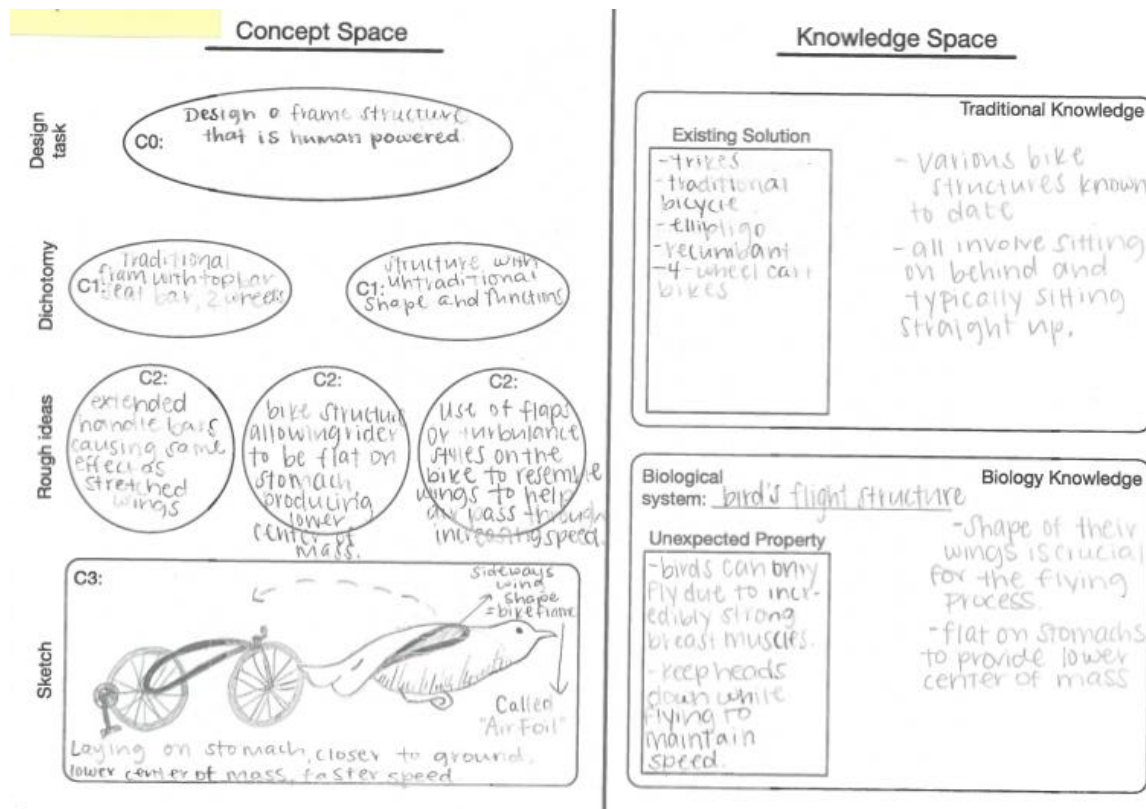 Concept Space
Design task
C0:
Design a frame structure
that is human powered.
Dichotomy
C1:
Traditional
fram with top bar
seat bar, 2 wheels
C1:
structure with
untraditional
shape and functions
Rough ideas
C2:
extended
handle bars
causing same
effect as
stretched
wings
C2:
bike structure
allowing rider
to be flat on
stomach
producing
lower
center of
mass.
C2:
Use of flaps
or turbulance
styles on the
bike to resemble
wings to help
air pass through
increasing speed.
Sketch
C3:
sideways
wing
shape
=bike frame
Called
"Air Foil"
Laying on stomach, closer to ground,
lower center of mass, faster speed
Knowledge Space
Traditional Knowledge
Existing Solution
-trikes
-traditional
bicycle
-elliptigo
-recumbant
-4-wheel cart
bikes
- various bike
structures known
to date
- all involve sitting
on behind and
typically sitting
straight up.
Biology Knowledge
Biological
system: bird's flight structure
Unexpected Property
-birds can only
fly due to incr-
edibly strong
breast muscles.
-keep heads
down while
flying to
maintain
speed.
-shape of their
wings is crucial
for the flying
process.
-flat on stomachs
to provide lower
center of mass